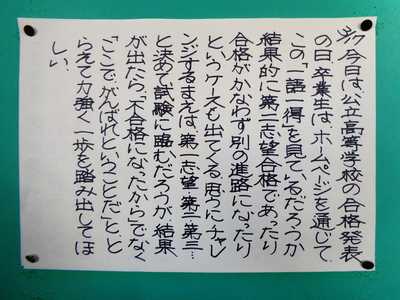 今日は、公立高等学校の合格発表
の日。卒業生は、ホームページを通じて、
この「一語一得」を見ているだろうか。
結果的に第二志望合格であったり
合格がかなわず別の進路になったり
というケースも出てくる。思うにチャレ
ンジするまえは、第一志望・第二・第三…
と決めて試験に臨むだろうが、結果
が出たら、「不合格になったから」でなく
「ここで、がんばれということだ」と、と
らえて力強く一歩を踏み出してほ
しい。